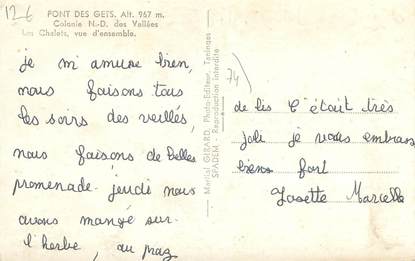 126
PONT DES GETS. Alt. 967 m.
Colonie N.-D. des Vallées
Les Chalets, vue d'ensemble.
je m'amuse bien,
nous faisons tous
les soirs des veillés,
nous faisons de belles
promenade. jeudi nous
avons mangé sur
l'herbe, au praz
Martial GIRARD, Photo-Editeur, Taninges
SPADEM - Reproduction interdite
74
de lis C'était très
joli je vous embrass
biens fort
Josette Marcelle